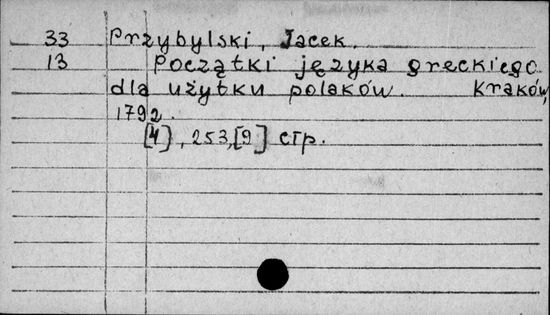 33 Przybylski, Jacek.
13 Początki języka greckiego
dla użytku polaków. Kraków,
1792.
[4], 253,[9] стр.